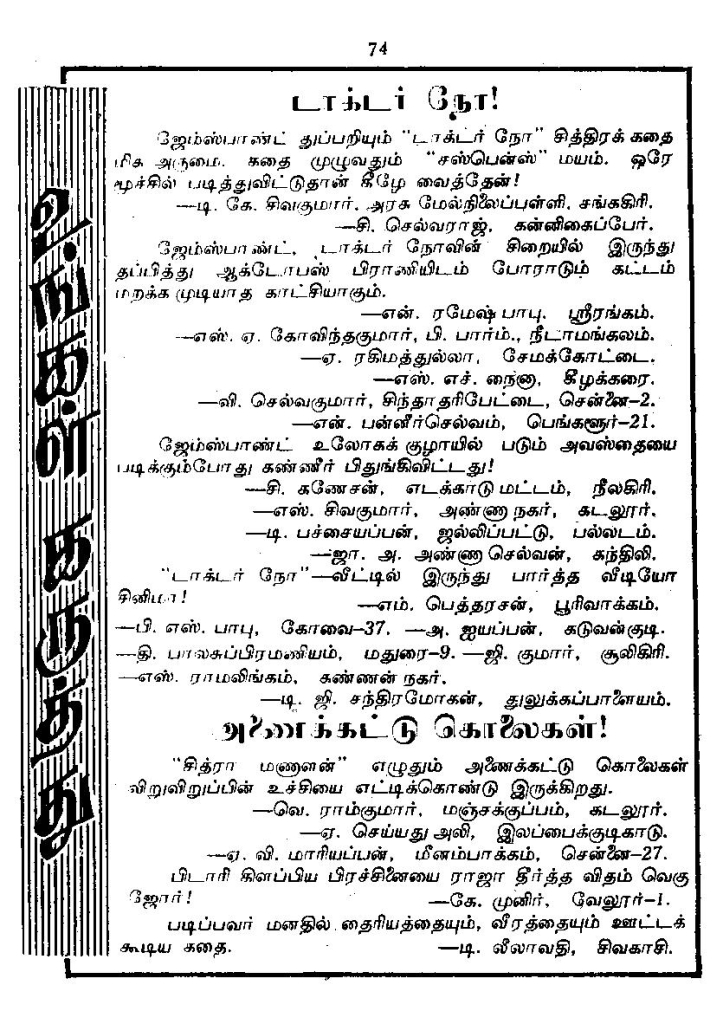 74
உங்கள் கருத்து
டாக்டர் நோ!
ஜேம்ஸ்பாண்ட் துப்பறியும் "டாக்டர் நோ" சித்திரக் கதை
மிக அருமை. கதை முழுவதும் "சஸ்பென்ஸ்" மயம். ஒரே
மூச்சில் படித்துவிட்டுதான் கீழே வைத்தேன்!
—டி. கே. சிவகுமார். அரசு மேல்நிலைப்பள்ளி. சங்ககிரி.
—சி. செல்வராஜ், கன்னிகைப்பேர்.
ஜேம்ஸ்பாண்ட், டாக்டர் நோவின் சிறையில் இருந்து
தப்பித்து ஆக்டோபஸ் பிராணியிடம் போராடும் கட்டம்
மறக்க முடியாத காட்சியாகும்.
—என். ரமேஷ் பாபு. ஸ்ரீரங்கம்.
—எஸ். ஏ. கோவிந்தகுமார், பி. பார்ம்., நீடாமங்கலம்.
—ஏ. ரகிமத்துல்லா, சேமக்கோட்டை.
—எஸ். எச். நைனா, கீழக்கரை.
—வி. செல்வகுமார், சிந்தாதரிபேட்டை, சென்னை–2.
—என். பன்னீர்செல்வம், பெங்களூர்–21.
ஜேம்ஸ்பாண்ட் உலோகக் குழாயில் படும் அவஸ்தையை
படிக்கும்போது கண்ணீர் பிதுங்கிவிட்டது!
—சி. கணேசன், எடக்காடு மட்டம், நீலகிரி.
—எஸ். சிவகுமார், அண்ணா நகர், கடலூர்.
—டி. பச்சையப்பன், ஜல்லிப்பட்டு, பல்லடம்.
—ஜா. அ. அண்ணா செல்வன், கந்திலி.
"டாக்டர் நோ"—வீட்டில் இருந்து பார்த்த வீடியோ
சினிமா!
—எம். பெத்தரசன், பூரிவாக்கம்.
—பி. எஸ். பாபு, கோவை–37. —அ. ஐயப்பன், கடுவன்குடி.
—தி. பாலசுப்பிரமணியம், மதுரை–9. —ஜி. குமார், சூலிகிரி.
—எஸ். ராமலிங்கம், கண்ணன் நகர்.
—டி. ஜி. சந்திரமோகன், துலுக்கப்பாளையம்.
அணைக்கட்டு கொலைகள்!
"சித்ரா மணாளன்" எழுதும் அணைக்கட்டு கொலைகள்
விறுவிறுப்பின் உச்சியை எட்டிக்கொண்டு இருக்கிறது.
—வெ. ராம்குமார், மஞ்சக்குப்பம், கடலூர்.
—ஏ. செய்யது அலி, இலப்பைக்குடிகாடு.
—ஏ. வி. மாரியப்பன், மீனம்பாக்கம், சென்னை–27.
பிடாரி கிளப்பிய பிரச்சினையை ராஜா தீர்த்த விதம் வெகு
ஜோர்!
—கே. முனிர், வேலூர்–1.
படிப்பவர் மனதில் தைரியத்தையும், வீரத்தையும் ஊட்டக்
கூடிய கதை.
—டி. லீலாவதி, சிவகாசி.